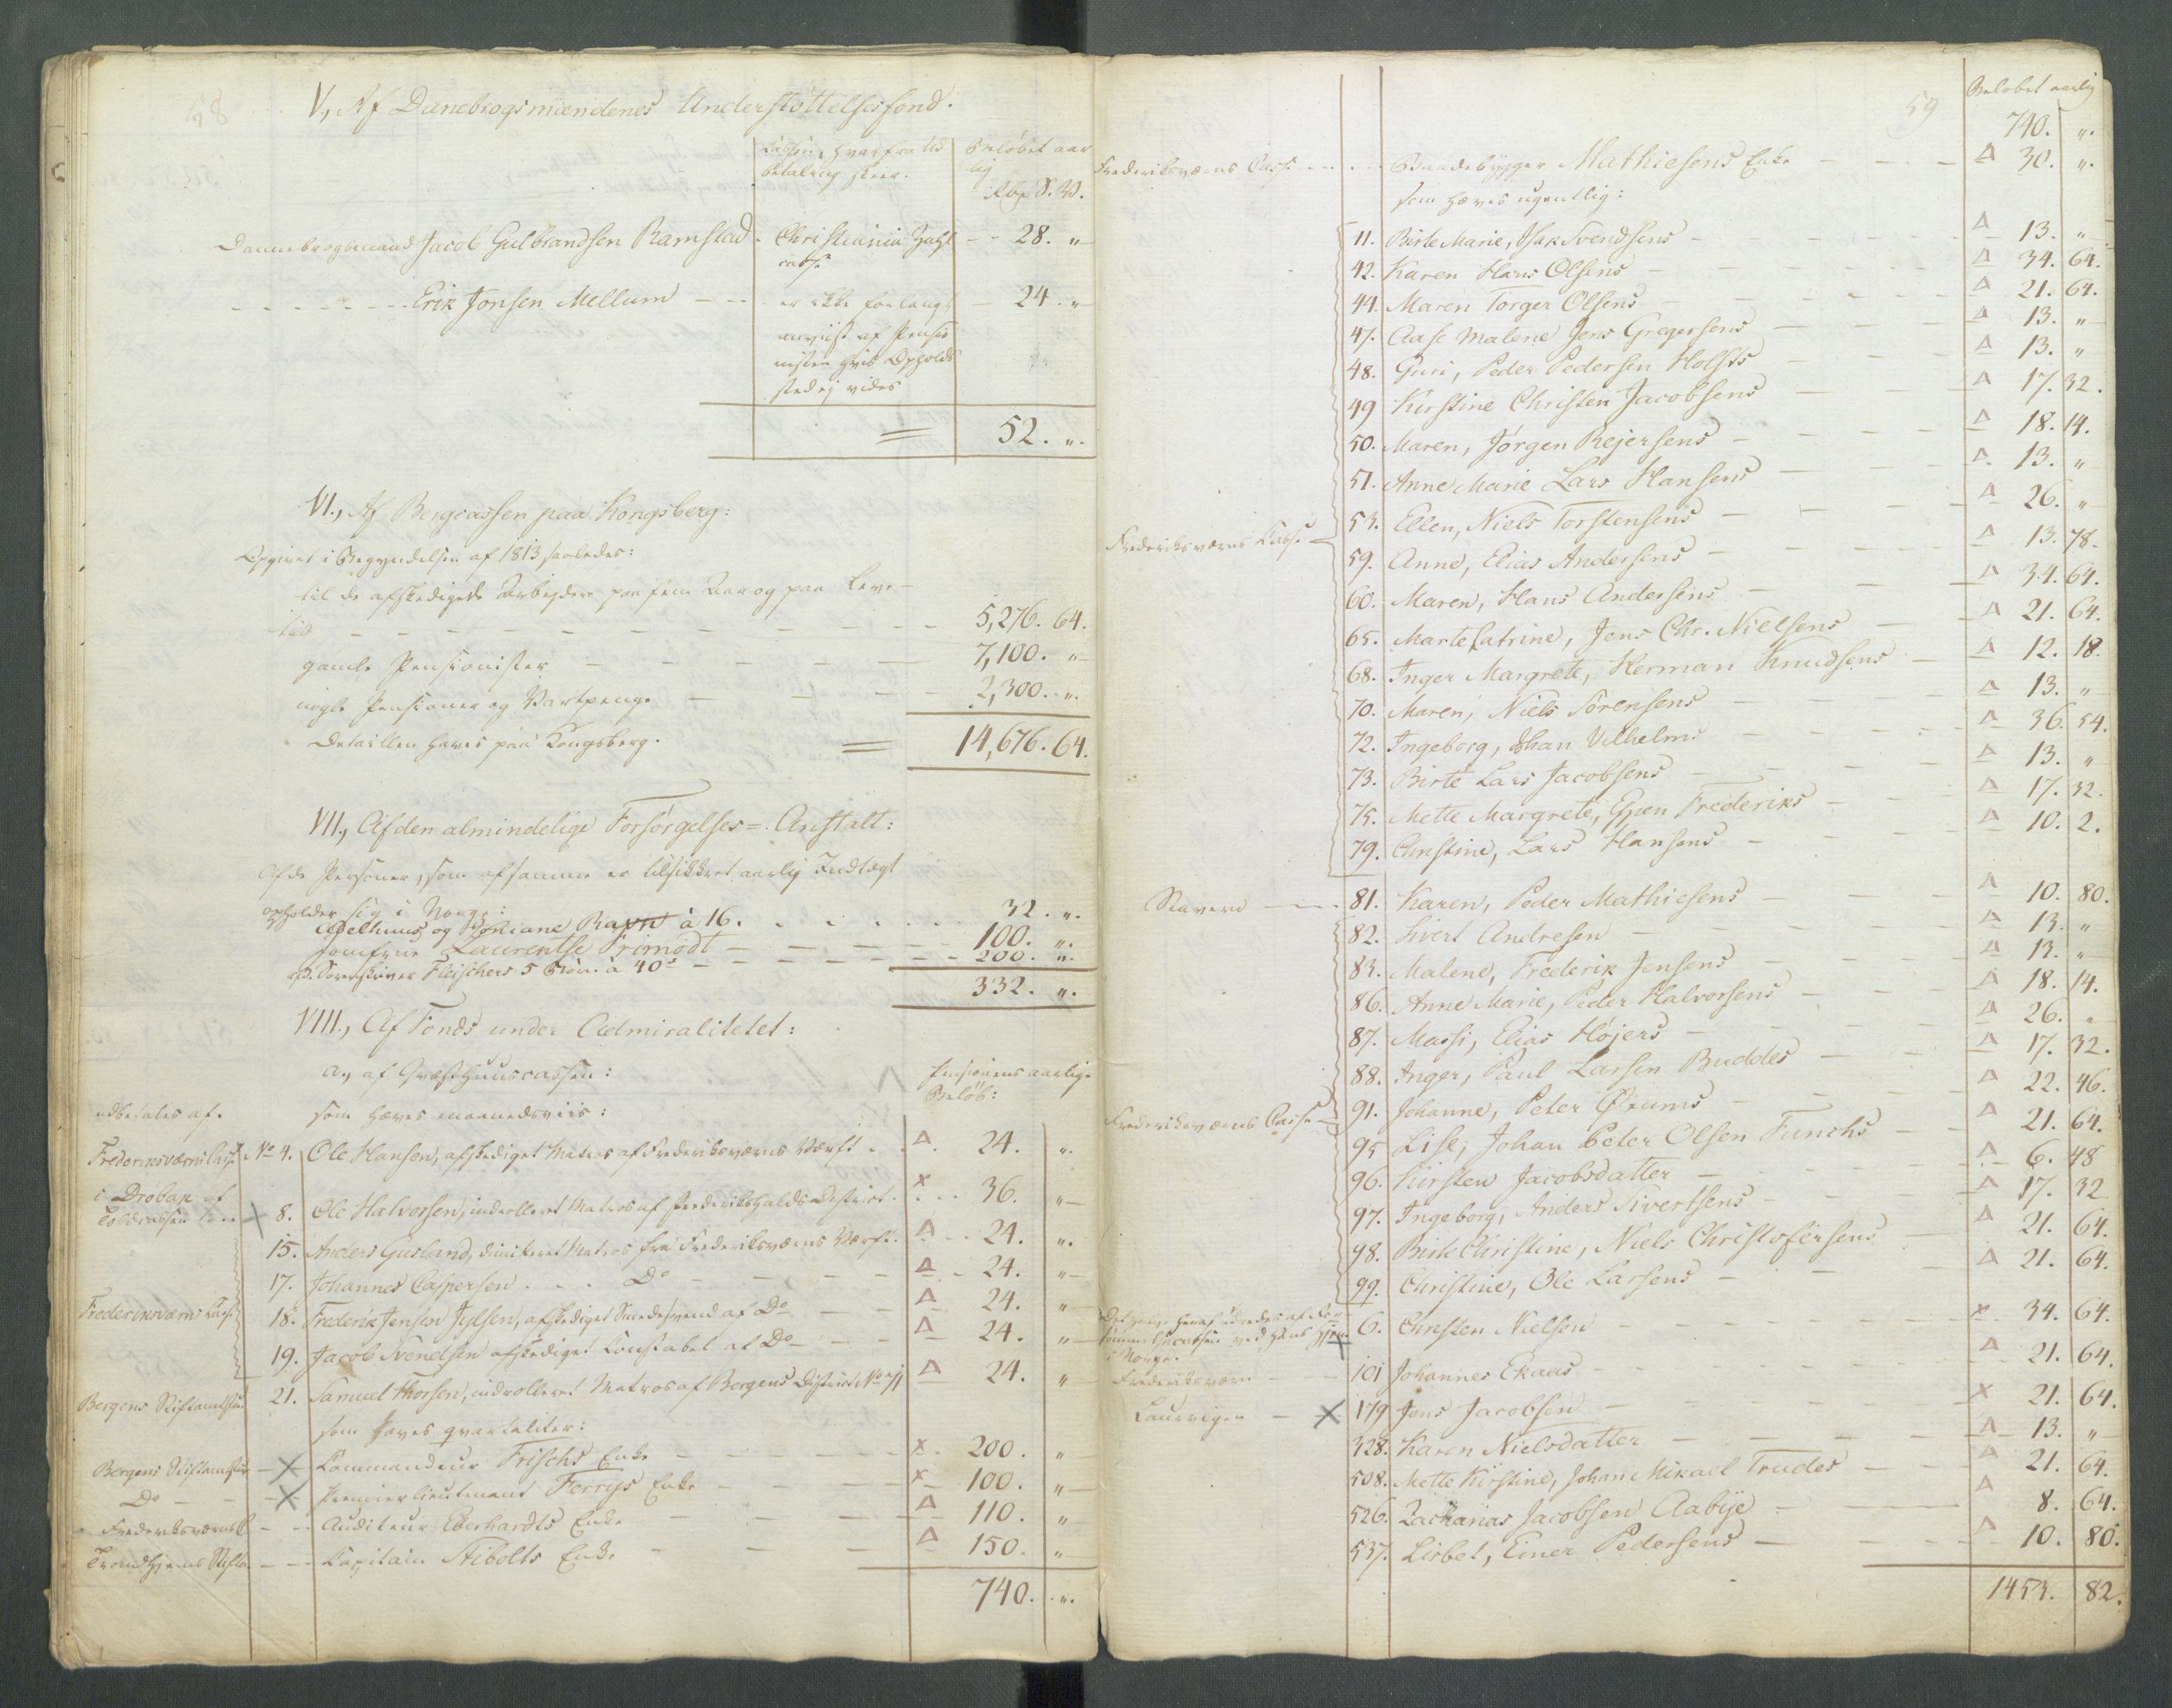 V, Af Danebrogsmændenes Understøttelsesfond.
Cassen, hvorfra Ud
betaling skeer.
Beløbet aar
lig
Rbp S. V.
Dannebrogsmand Jacob Gulbrandsen Ramstad. Christiania Zahl - - 28. "
casse
- - - - - - - Erik Jonsen Mellum - - - er ikke forlangt - 24. "
anviist af Pensio
nisten hvis Opholds
sted ej vides
52. ".
VI., Af Bergcassen paa Kongsberg:
Opgivet i Begyndelsen af 1813 saaledes:
til de afskedigede Arbejdere paa fem Aar og paa Leve-
tid - - - - - - - - - - 5,276. 64.
gamle Pensionister - - - - - 7,100. "
nogle Pensioner og Vartpenge - - - - 2,300. ".
Detaillen haves paa Kongsberg. = 14,676. 64.
VII., Af den almindelige Forsørgelses=Anstalt:
Af de Personer, som af samme er tilsikkret aarlig Indtægt
opholder sig i Norge:
og à 16. . . . . . 32. ".
Jomfrue Laurentse Primodt - - - - - 100. ".
Sorenskriver Fleischers 5 Børn à 40 - - - - - 200. ".
332. ".
VIII., Af Fonds under Admiralitetet:
a., af Qvæsthuuscassen:
Pensionens aarlige
Beløb:
udbetales af.
som hæves maanedsviis:
Frederiksværns Casse No 4. Ole Hansen, afskediget Matros af Frederiksværns Værft . Δ 24. ".
i Drøbak af
Toldcassen × 8. Ole Halvorsen, indrolleret Matros af Frederikshalds District. × 36. "
15. Anders Gusland, dimitteret Matros fra Frederiksværns Værft. Δ 24. ".
17. Johannes Caspersen . . . Do - - - - Δ 24. "
Frederiksværns Casse 18. Frederik Jensen Jylsen, afskediget Smedesvend af Do - - Δ 24. "
19. Jacob Svendsen afskediget Constabel af Do - - Δ 24. "
Bergens Stiftamtstue 21. Samuel Thorsen, indrolleret Matros af Bergens District No 7/1 Δ 24. "
som hæves qvartaliter:
Bergens Stiftamtstue - × Commandeur Frischs Enke - - - - × 200. "
Do - - × Premierlieutenant Ferrys Enke - - - - × 100. "
Frederiksværns C - - Auditeur Eberhardts Enke - - - Δ 110. "
Trondhjems Stiftst - - Capitain Stibolts Enke - - - Δ 150. "
740. ".
59
Beløbet aarlig
740. ".
Frederiksværns Casse - - - Baadebygger Mathiesens Enke - - - Δ 30. ".
som hæves ugentlig:
11. Birte Marie, Isak Svendsens - - - Δ 13. "
42. Karen Hans Olsens - - - Δ 34. 64.
44. Maren Torger Olsens - - - Δ 21. 64.
47. Aase Malene Jens Gregersens - - - Δ 13. "
48. Guri, Peder Pedersen Holsts - - - Δ 13. "
49 Kirstine Christen Jacobsens - - - Δ 17. 32.
50. Maren, Jørgen Rejersens - - - Δ 18. 14.
51. Anne Marie Lars Hansens - - - Δ 13. "
Frederiksværns Casse 53. Ellen, Niels Torstensens - - - Δ 26. "
59. Anne, Elias Andersens - - - Δ 13. 78.
60. Maren, Hans Andersens - - - Δ 34. 64.
65. Marte Catrine, Jens Chr. Nielsens - Δ 21. 64.
68. Inger Margrete, Herman Knudsens - Δ 12. 18.
70. Maren, Niels Sørensens - - - Δ 13. "
72. Ingeborg, Johan Vilhelms - - - Δ 36. 54.
73. Birte Lars Jacobsens - - - Δ 13. "
75. Mette Margrete, Espen Frederiks - - Δ 17. 32.
79. Christine, Lars Hansens - - - Δ 10. 2.
Stavern - - - 81. Karen, Peder Mathiesens - - - Δ 10. 80.
82. Sivert Andresen - - - Δ 13. "
83. Malene, Frederik Jensens - - - Δ 13. "
86. Anne Marie, Peder Halvorsens - - Δ 18. 14.
87. Massi, Elias Højers - - - Δ 26. "
88. Inger, Paul Larsen Buddes - - Δ 17. 32.
Frederiksværns Casse 91. Johanne, Peter Ørums - - - Δ 22. 46.
95 Lise, Johan Peter Olsen Funchs - - Δ 21. 64.
96. Kirsten Jacobsdatter - - - Δ 6. 48
97. Ingeborg, Anders Sivertsens - - - Δ 17. 32
98. Birte Christine, Niels Christofersens - Δ 21. 64.
99. Christine, Ole Larsens - - - Δ 21. 64.
i Norge. × 6. Christen Nielsen - - - × 34. 64.
Frederiksværn - - 101 Johannes Ekaas - - - Δ 21. 64.
Laurvigen - × 179 Jens Jacobsen - - - × 21. 64.
328. Karen Nielsdatter - - - Δ 13. "
508. Mette Kirstine, Johan Mikael Trudes - - Δ 21. 64.
526. Zacharias Jacobsen Aabye - - Δ 8. 64.
537. Lisbet, Einer Pedersens - - - Δ 10. 80.
1453. 82.